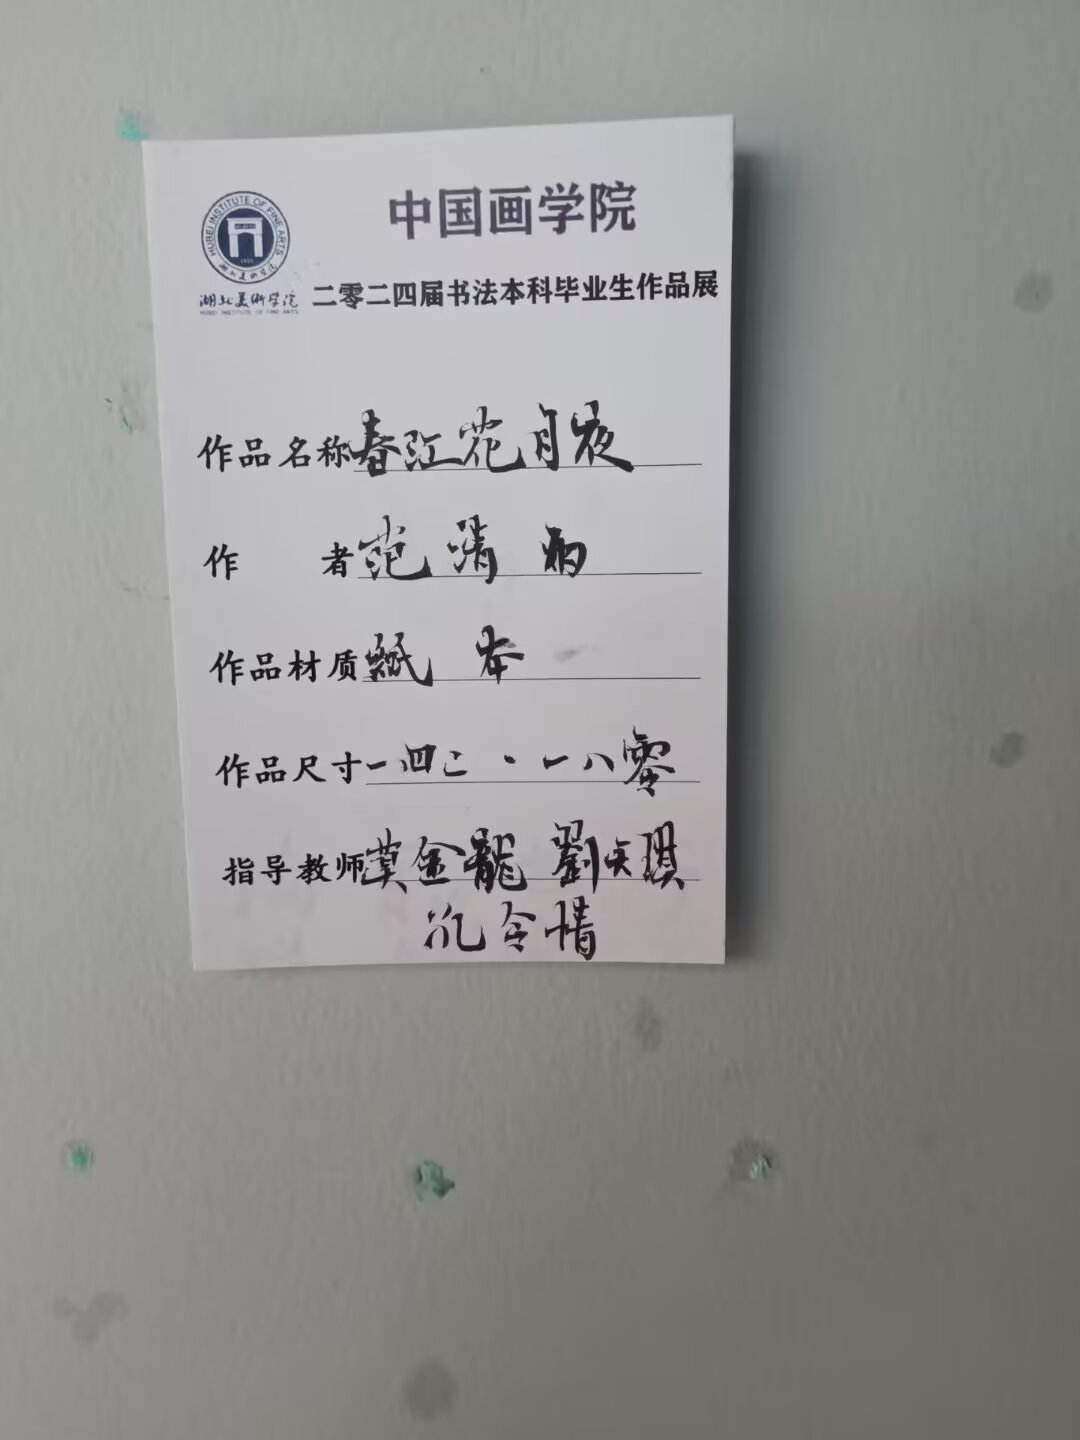 中国画学院
二零二四届书法本科毕业生作品展
HUBEI INSTITUTE OF FINE ARTS
湖北美術学院
湖北美術学院
HUBEI INSTITUTE OF FINE ARTS
作品名称 春江花月夜
作 者 范清
作品材质 紙本
作品尺寸 一四二·一八零
指导教师 莫金龍 劉天琪
令情